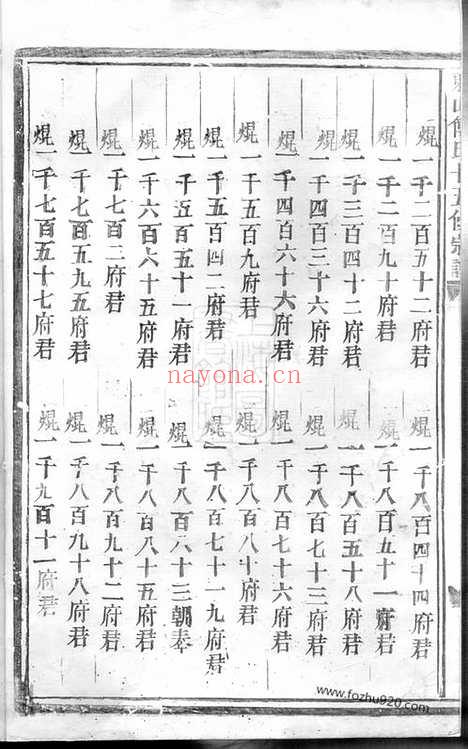 焜一千二百五十二府君
焜一千二百九十府君
焜一千三百四十二府君
焜一千四百三十六府君
焜一千四百六十六府君
焜一千五百九府君
焜一千五百四二府君
焜一千五百五十一府君
焜一千六百六十五府君
焜一千七百二府君
焜一千七百五九五府君
焜一千七百五十七府君
焜一千八百四十四府君
焜一千八百五十一府君
焜一千八百五十八府君
焜一千八百七十三府君
焜一千八百七十六府君
焜一千八百八十府君
焜一千八百七十一九府君
焜一千八百六十三朝奉
焜一千八百八十五府君
焜一千八百九十二府君
焜一千八百九十八府君
焜一千九百十一府君
nayona.cn
www.fozhu920.com